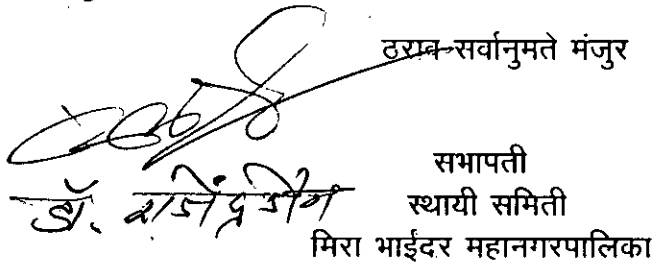 ठराव सर्वानुमते मंजुर
सभापती
डॉ. राजेंद्र जैन
स्थायी समिती
मिरा भाईंदर महानगरपालिका